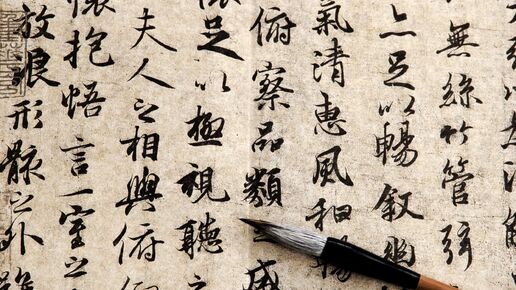 以為流
無絲竹管弦
亦足以暢叙幽
氣清惠風和暢
俯察品類之盛
懷足以極視聽之
夫人之相與俯仰
懷抱悟言一室之
放浪形骸之外雖